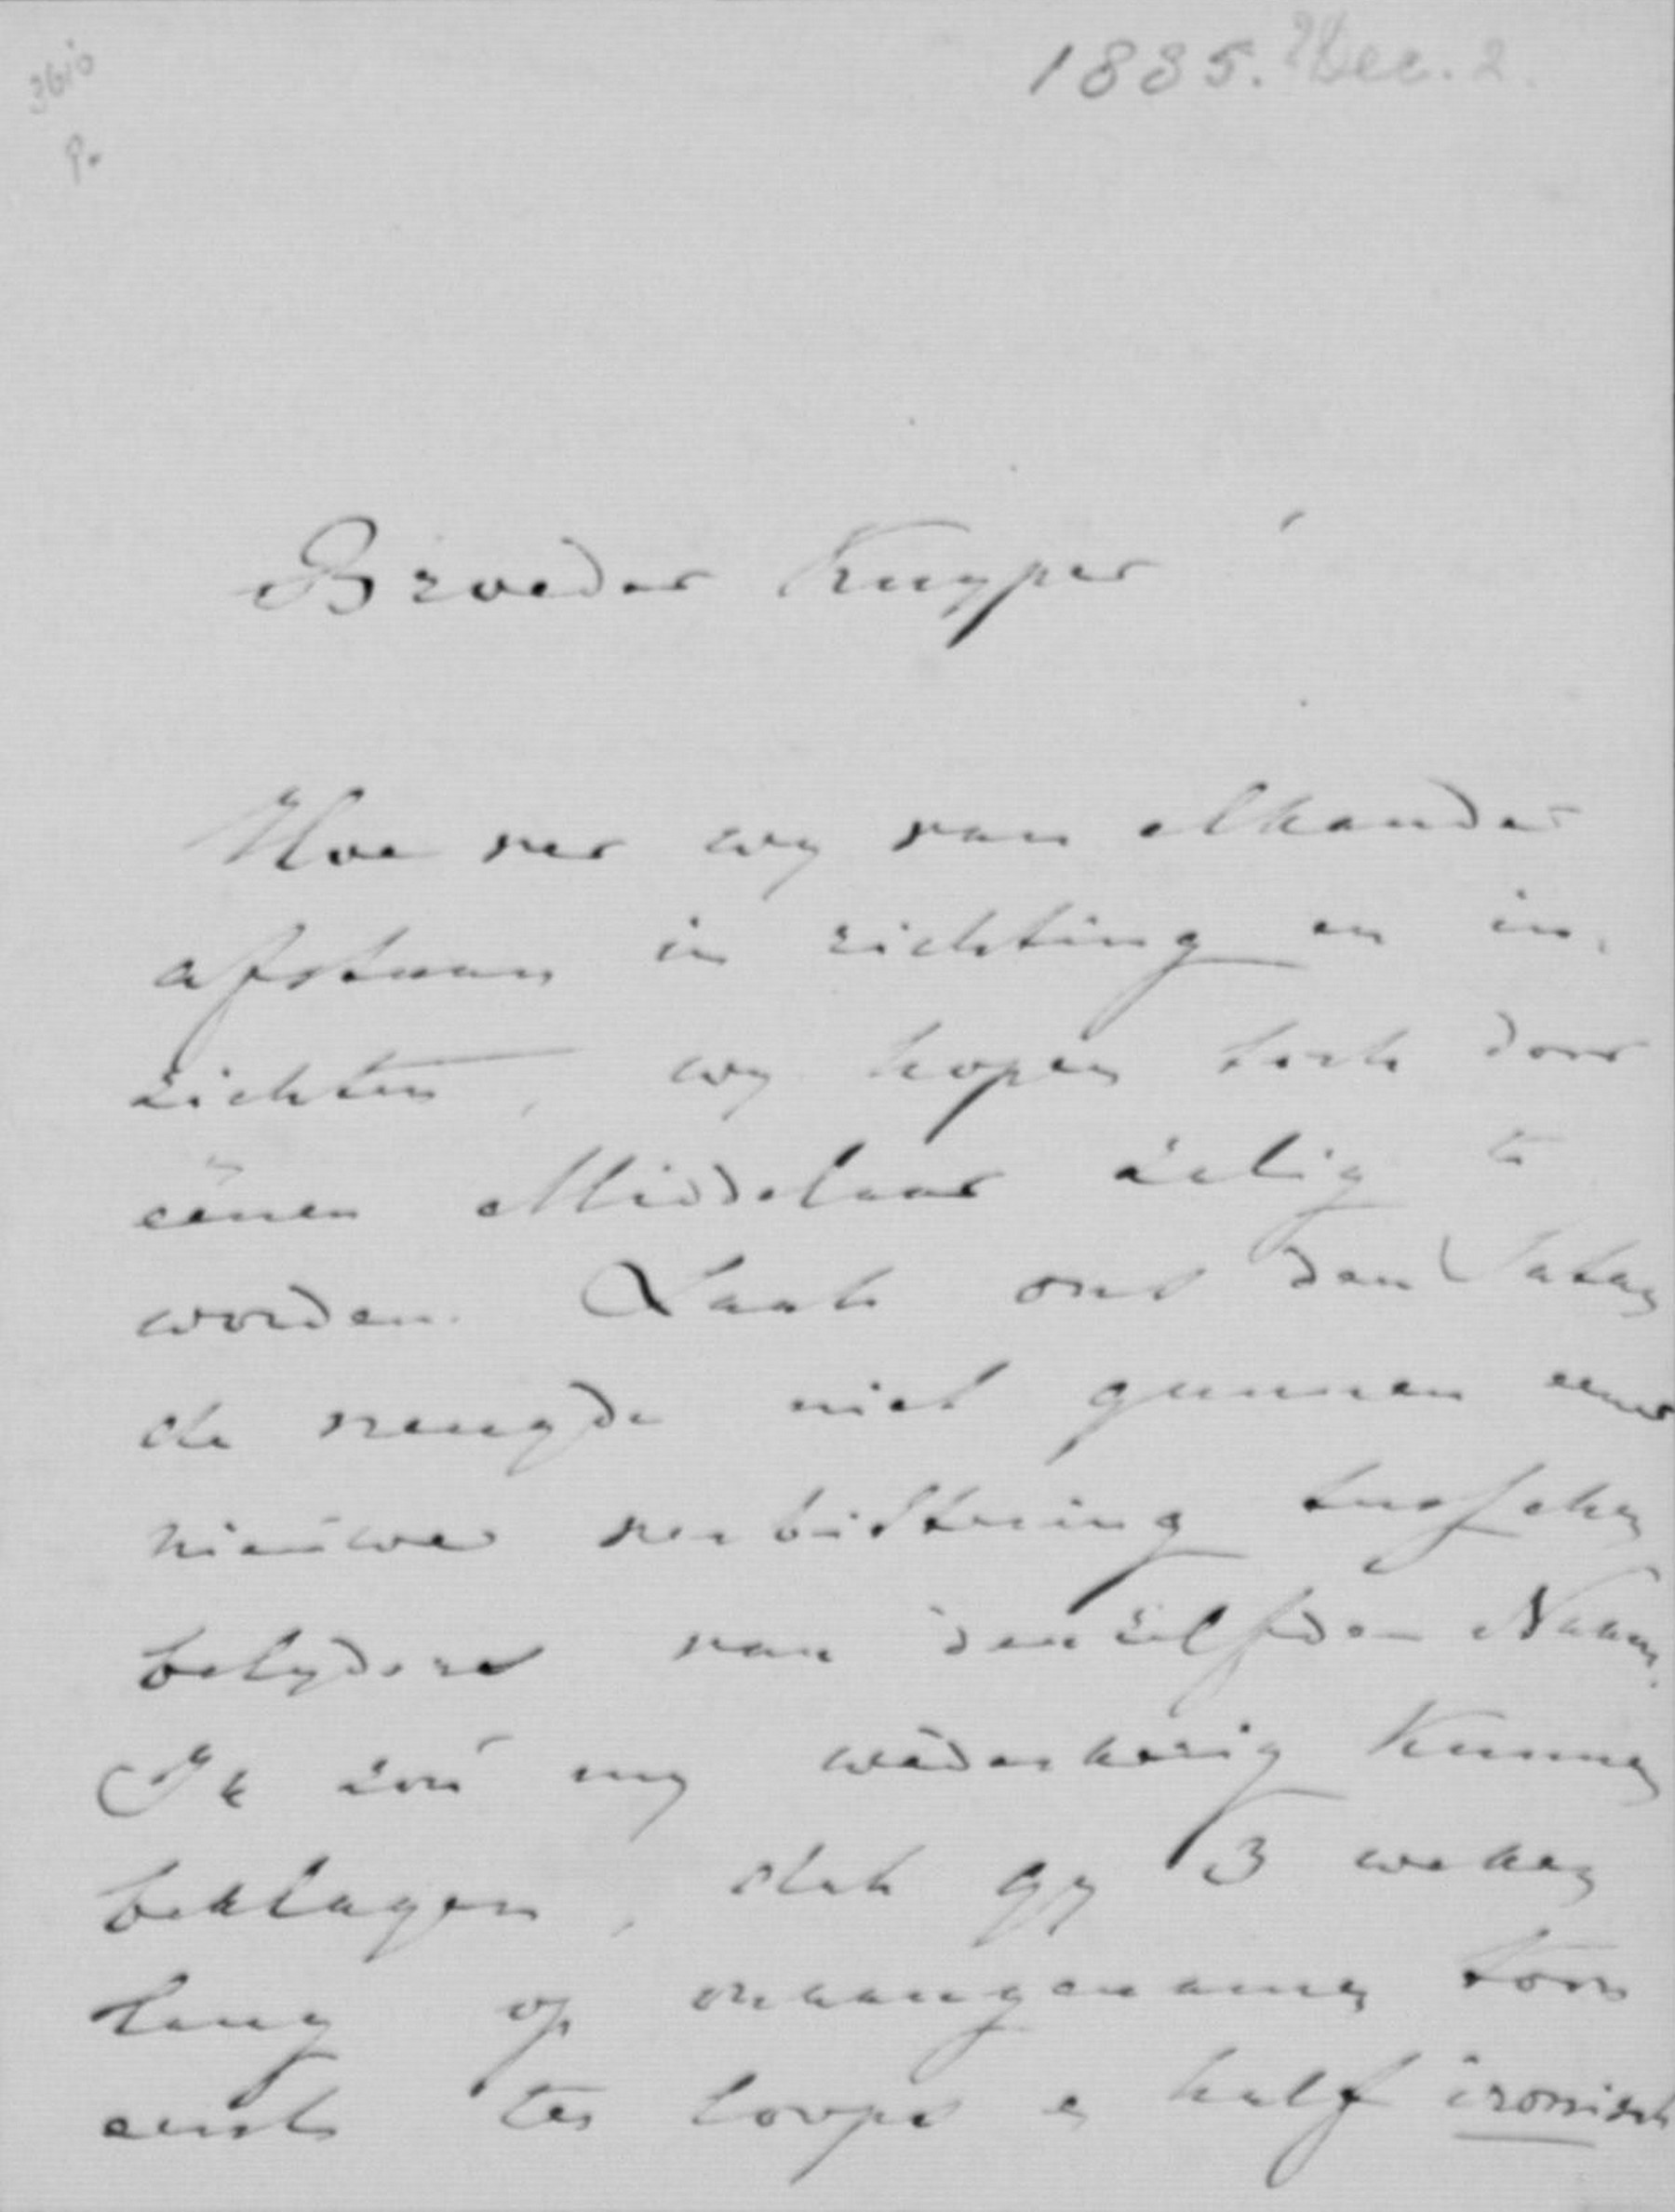 3610
1885. Dec. 2.
Broeder Kuyper
Hoe ver wy van elkander
afstaan in richting en in-
zichten, wy hopen toch door
éénen Middelaar zalig te
worden. Laat ons den Satan
de vreugde niet gunnen eener
nieuwe verbittering tusschen
belyders van denzelfden Naam.
Ik zou my wederkeerig kunnen
beklagen, dat gy 3 weken
lang op onaangenamen toon
eerst ter loops en half ironisch